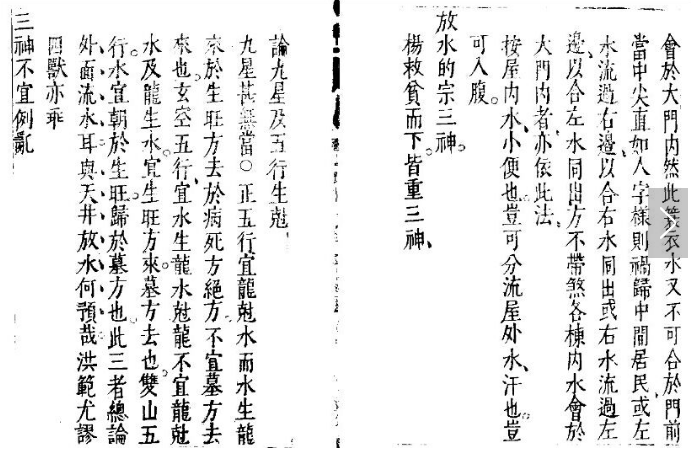 會於大門內然此簑衣水又不可合於門前
當中尖直如人字樣則禍歸中間居民或左
水流過右邊以合右水同出或右水流過左
邊以合左水同出方不帶煞各棟內水會於
大門內者亦依此法
按屋內水小便也豈可分流屋外水汗也豈
可入腹
放水的宗三神
楊救貧而下皆重三神
論九星及五行生尅
九星甚無當○正五行宜龍尅水而水生龍
來於生旺方去於病死方絕方不宜墓方去
來也玄空五行宜水生龍水尅龍不宜龍尅
水及龍生水宜生旺方來墓方去也雙山五
行水宜朝於生旺歸於墓方也此三者總論
外面流水耳與天井放水何預哉洪範尤謬
四獸亦乖
三神不宜倒亂